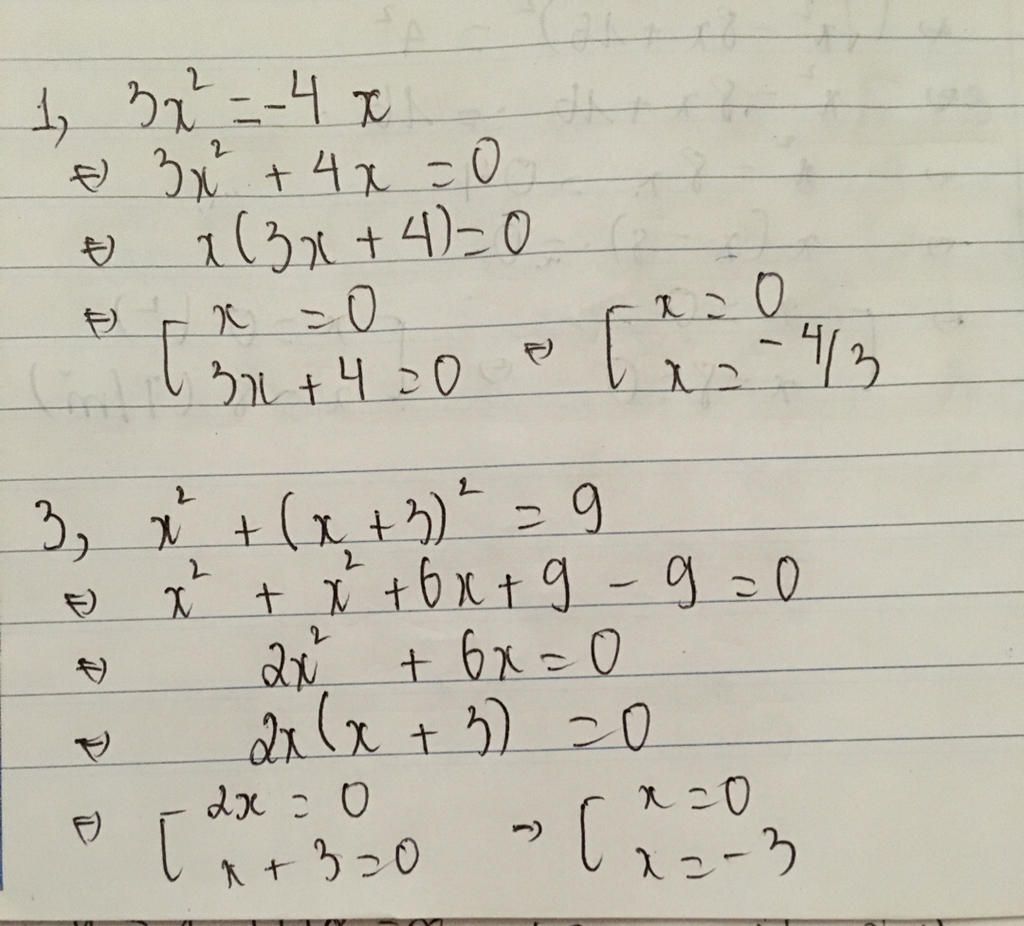 1, 3x² = -4 x
⇔ 3x² + 4x = 0
⇔ x(3x + 4) = 0
⇔ [ x = 0 ⇔ [ x = 0
3x + 4 = 0 x = -4/3
3, x² + (x + 3)² = 9
⇔ x² + x² + 6x + 9 - 9 = 0
⇔ 2x² + 6x = 0
⇔ 2x(x + 3) = 0
⇔ [ 2x = 0 → [ x = 0
x + 3 = 0 x = -3